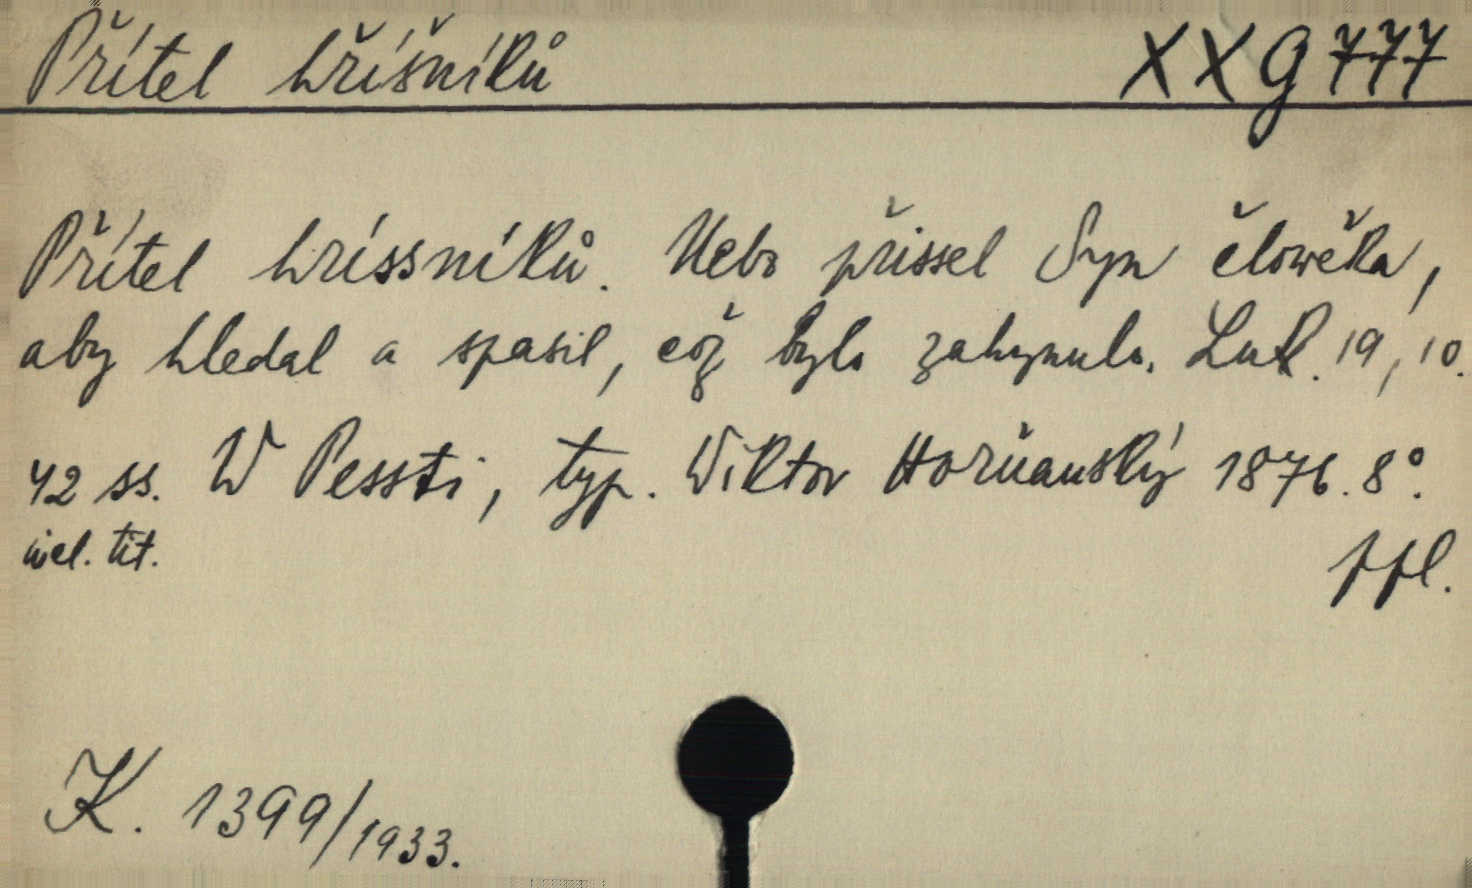 Přítel hříšníků XX G 777
Přítel hríssníků. Nebo přissel Syn člowěka,
aby hledal a spasil, což bylo zahynulo. Luk. 19, 10.
42 ss. W Pessti, typ. Wiktor Horňanský 1876. 8°.
incl. tit. ppl.
K. 1399/1933.